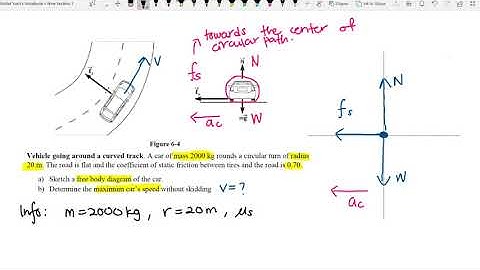 towards the center of
circular path.
V
fs
N
W
ac
N
fs
W
ac
Figure 6-4
Vehicle going around a curved track. A car of mass 2000 kg rounds a circular turn of radius
20 m. The road is flat and the coefficient of static friction between tires and the road is 0.70.
a) Sketch a free body diagram of the car.
b) Determine the maximum car's speed without skidding V=?
Info: m=2000kg, r=20m, μs